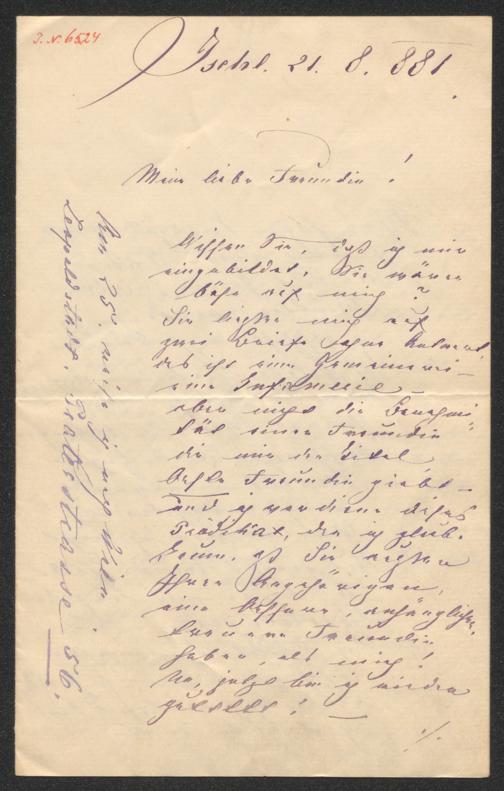 J. N. 6524
Ischl. 21. 8. 881.
Meine liebe Freundin!
Wissen Sie, daß ich mir
eingebildet, Sie wären
böse auf mich?
Sie ließen mich auf
zwei Briefe ohne Antwort
das ist eine Gemeinerei –
eine Infamerie –
aber nicht die
einer Freundin
die mir den Titel
beste Freundin giebt –
und ich verdiene dieses
Prädikat, denn ich glaube
kaum, daß Sie außer
Ihren Angehörigen,
eine bessere, anhänglichere,
treuere Freundin
haben, als mich!
Na, jetzt bin ich wieder
getröstet! –
./.
Am 25. reise ich nach Wien
Leopoldstadt. Praterstrasse 56.